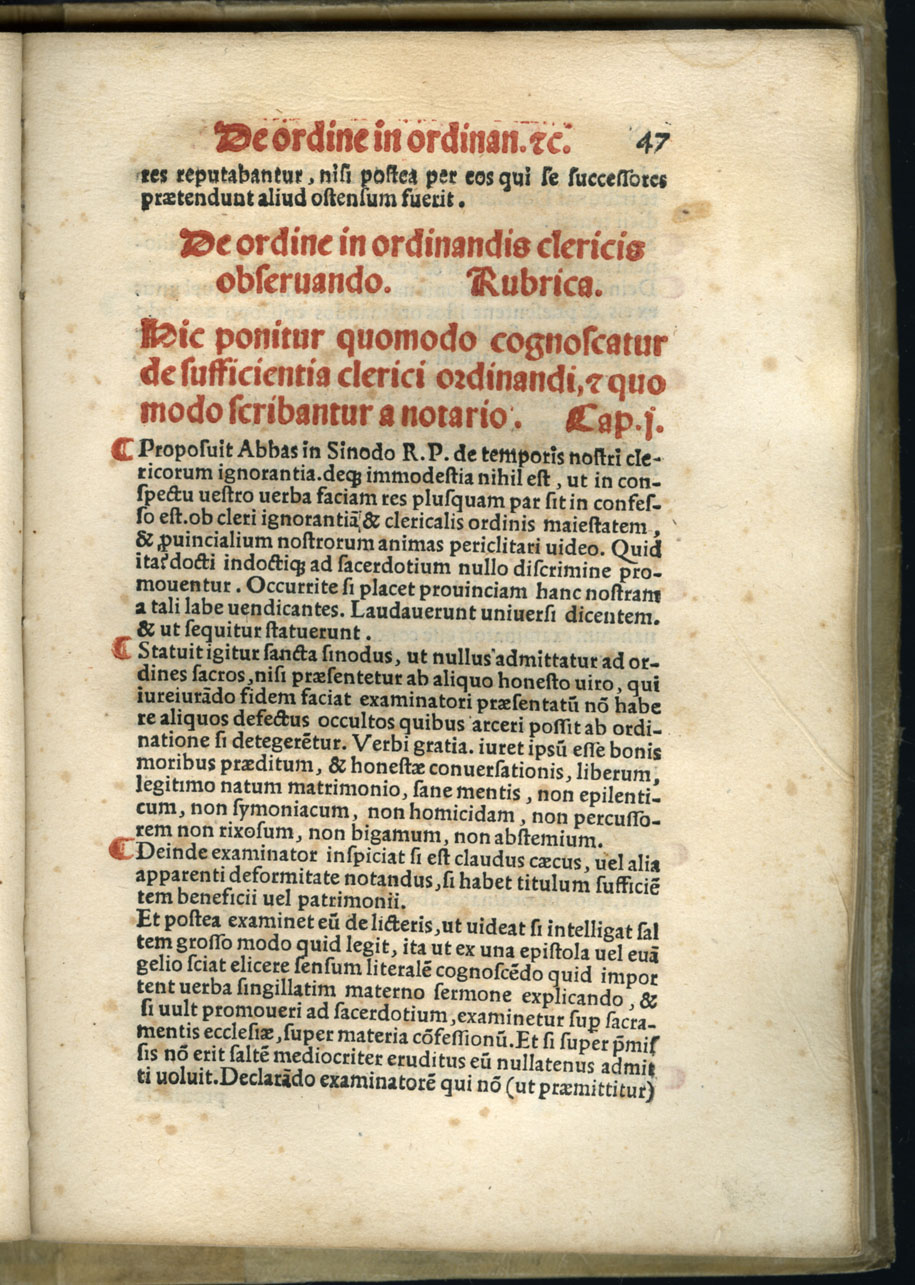 De ordine in ordinan.⁊c. 47
res reputabantur, niſi poſtea per eos qui ſe ſucceſſores
prætendunt aliud oſtenſum fuerit.
De ordine in ordinandis clericis
obſeruando. Rubrica.
Hic ponitur quomodo cognoſcatur
de ſufficientia clerici ordinandi, ⁊ quo
modo ſcribantur a notario. Cap.j.
¶ Propoſuit Abbas in Sinodo R.P. de temporis noſtri cle-
ricorum ignorantia.deqꝫ immodeſtia nihil eſt, ut in con-
ſpectu ueſtro uerba faciam res pluſquam par ſit in confeſ-
ſo eſt.ob cleri ignorantiā & clericalis ordinis maieſtatem,
& ꝓuincialium noſtrorum animas periclitari uideo. Quid
ita? docti indoctiqꝫ ad ſacerdotium nullo diſcrimine pro-
mouentur. Occurrite ſi placet prouinciam hanc noſtram
a tali labe uendicantes. Laudauerunt uniuerſi dicentem.
& ut ſequitur ſtatuerunt.
¶ Statuit igitur ſancta ſinodus, ut nullus admittatur ad or-
dines ſacros, niſi præſentetur ab aliquo honeſto uiro, qui
iureiurādo fidem faciat examinatori præſentatū nō habe
re aliquos defectus occultos quibus arceri poſſit ab ordi-
natione ſi detegerētur. Verbi gratia. iuret ipſū eſſe bonis
moribus præditum, & honeſtæ conuerſationis, liberum,
legitimo natum matrimonio, ſane mentis, non epilenti-
cum, non ſymoniacum, non homicidam, non percuſſo-
rem non rixoſum, non bigamum, non abſtemium.
¶ Deinde examinator inſpiciat ſi eſt claudus cæcus, uel alia
apparenti deformitate notandus, ſi habet titulum ſufficiē
tem beneficii uel patrimonii.
Et poſtea examinet eū de licteris, ut uideat ſi intelligat ſal
tem groſſo modo quid legit, ita ut ex una epiſtola uel euā
gelio ſciat elicere ſenſum literalē cognoſcēdo quid impor
tent uerba ſingillatim materno ſermone explicando, &
ſi uult promoueri ad ſacerdotium, examinetur ſuꝑ ſacra-
mentis eccleſiæ, ſuper materia cōfeſſionū. Et ſi ſuper p̄miſ
ſis nō erit ſaltē mediocriter eruditus eū nullatenus admit
ti uoluit. Declarādo examinatorē qui nō (ut præmittitur)